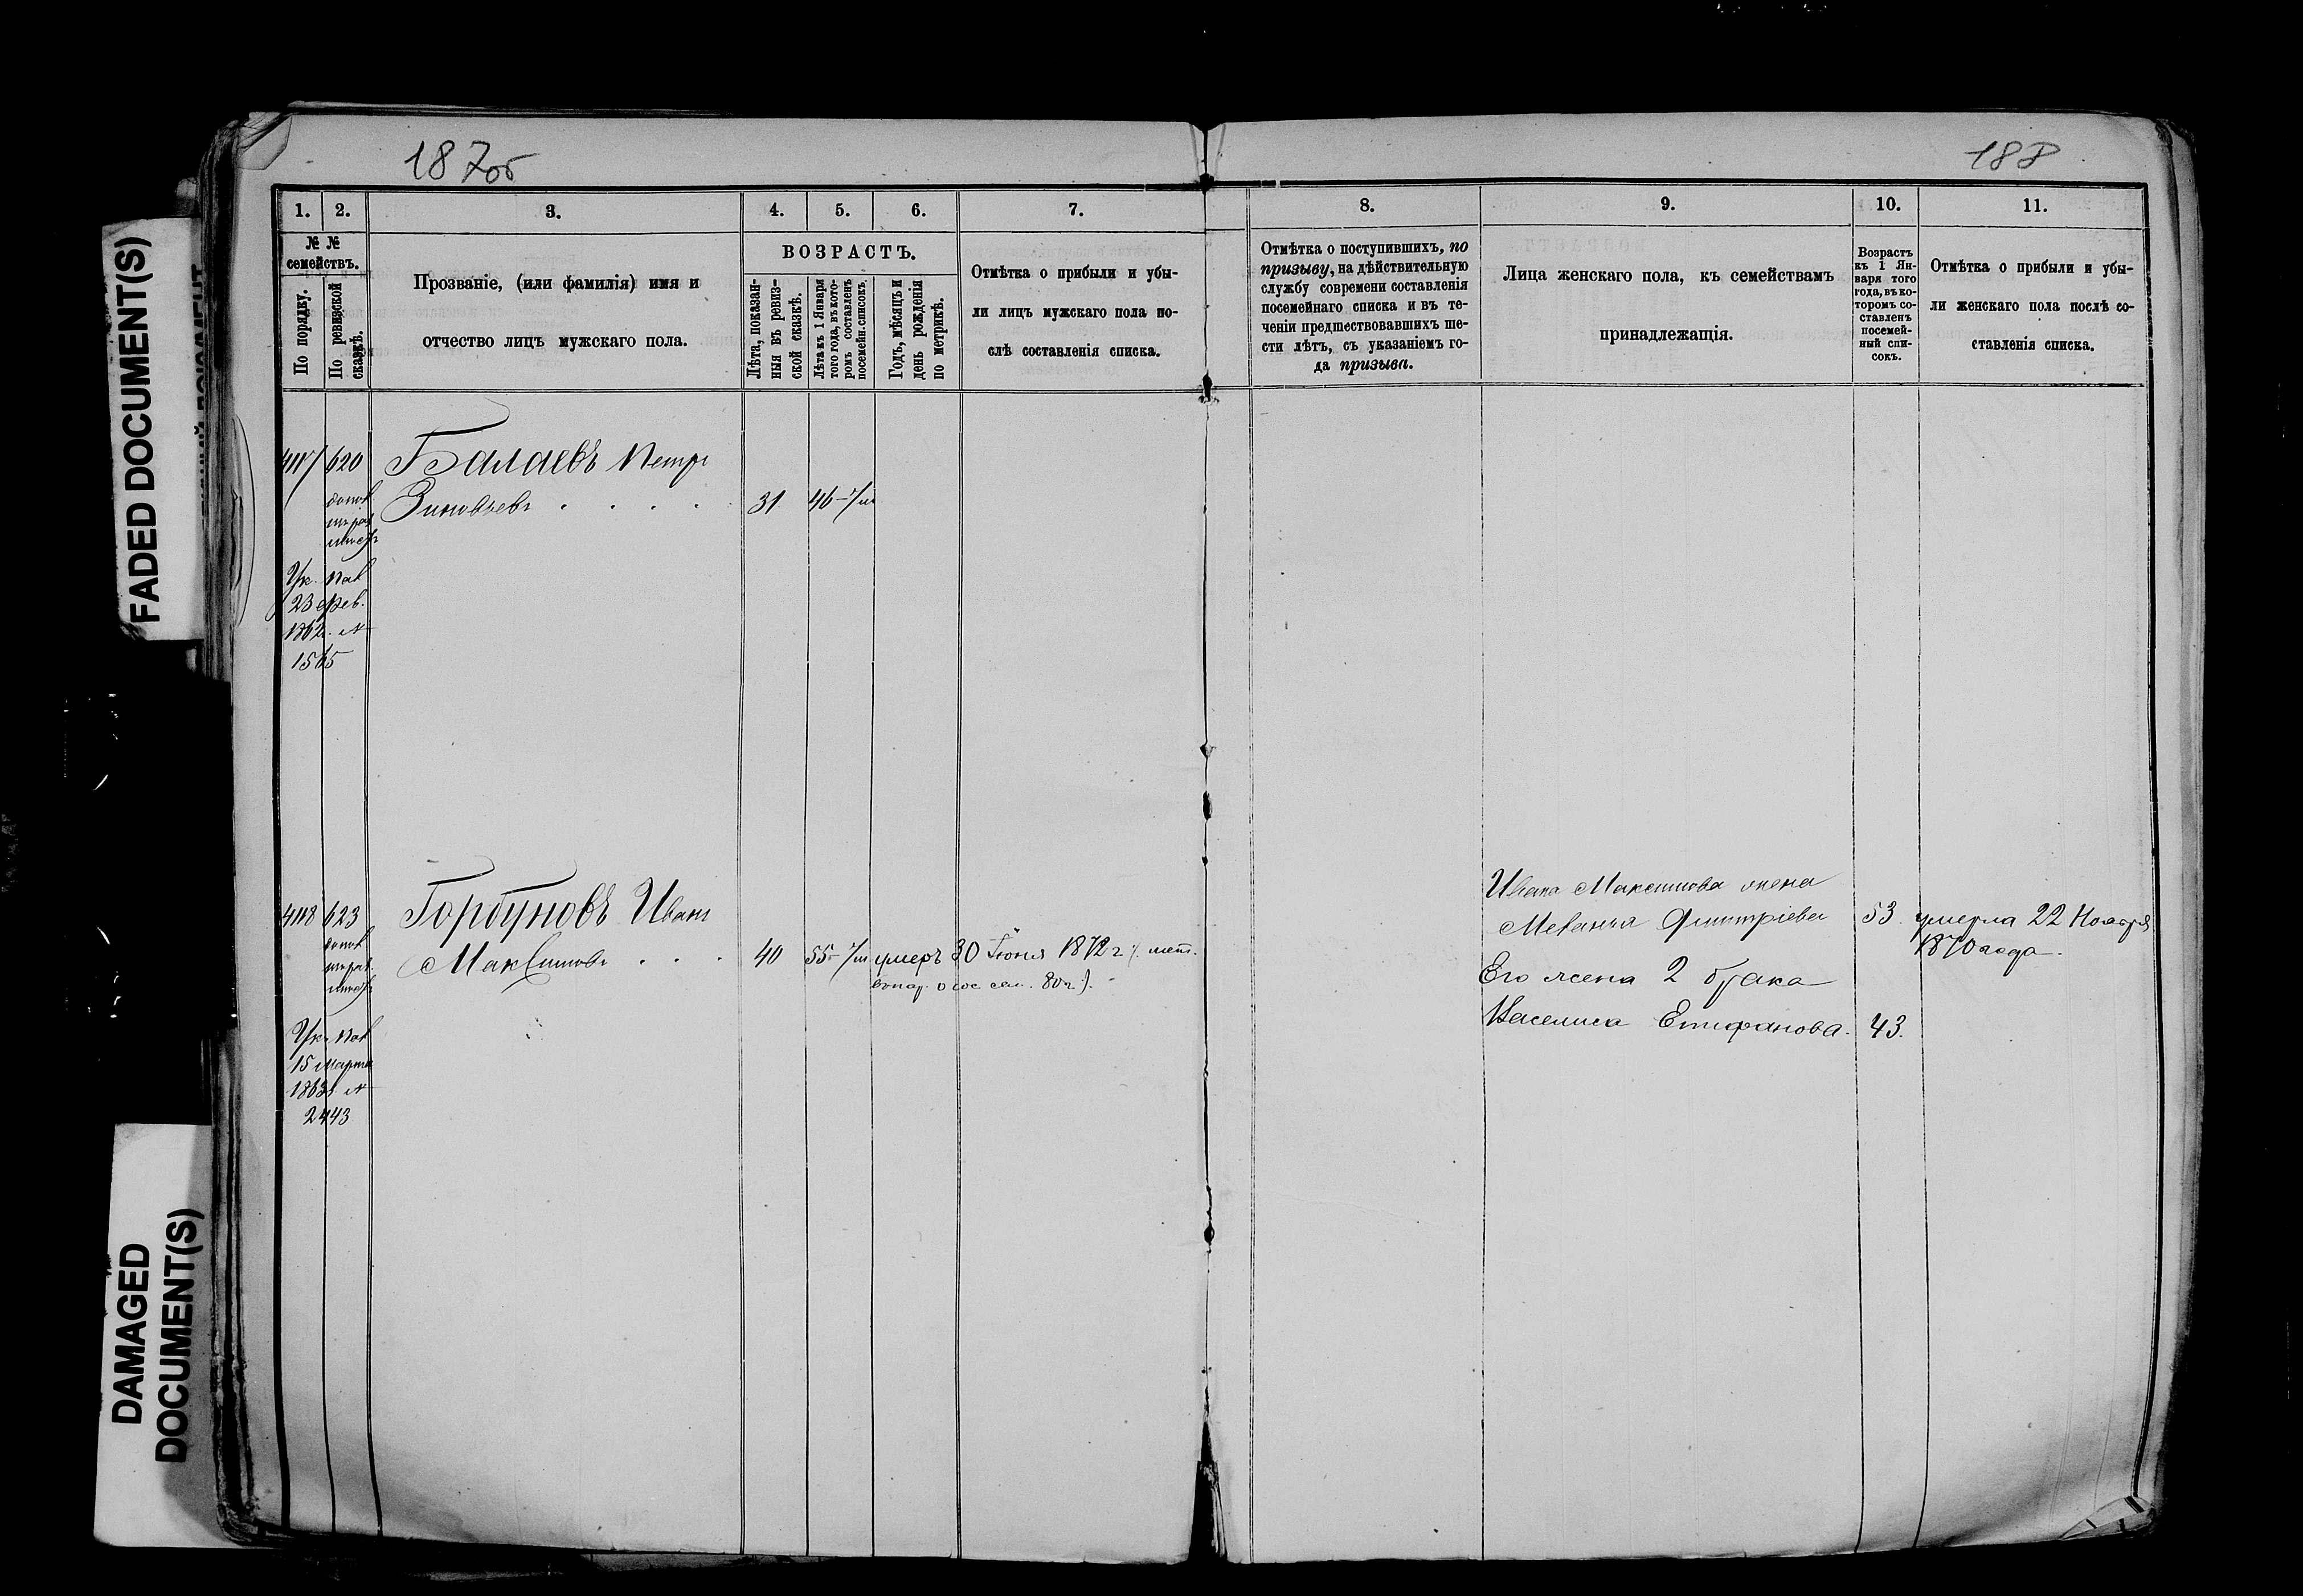 187об
188
FADED DOCUMENT(S)
DAMAGED
DOCUMENT(S)
1.
2.
3.
4.
5.
6.
7.
8.
9.
10.
11.
№ №
семействъ.
По порядку.
По ревизской
сказкѣ.
Прозваніе, (или фамилія) имя и
отчество лицъ мужскаго пола.
ВОЗРАСТЪ.
Лѣта, показан-
ныя въ ревиз-
ской сказкѣ.
Лѣта къ 1 Января
того года, въ кото-
ромъ составленъ
посемейн. списокъ.
Годъ, мѣсяцъ и
день рожденія
по метрикѣ.
Отмѣтка о прибыли и убы-
ли лицъ мужскаго пола по-
слѣ составленія списка.
Отмѣтка о поступившихъ, по
призыву, на дѣйствительную
службу современи составленія
посемейнаго списка и въ те-
ченіи предшествовавшихъ ше-
сти лѣтъ, съ указаніемъ го-
да призыва.
Лица женскаго пола, къ семействамъ
принадлежащія.
Возрастъ
къ 1 Ян-
варя того
года, въ ко-
торомъ со-
ставленъ
посемей-
ный спи-
сокъ.
Отмѣтка о прибыли и убы-
ли женскаго пола послѣ со-
ставленія списка.
620 Балаевъ Петръ
Зиновьевъ 31 46
Ук. Пал
23 Фев.
1862 г. №
1565
623 Горбуновъ Иванъ
Максимовъ 40 55 умеръ 30 Іюня 1872 г
80 г.)
Ук. Пал
15 Марта
1863 №
2443
Ивана Максимова жена
Меланья Дмитріева 53 умерла 22 Ноября
1870 года.
Его жена 2 брака
Василиса Епифанова 43.